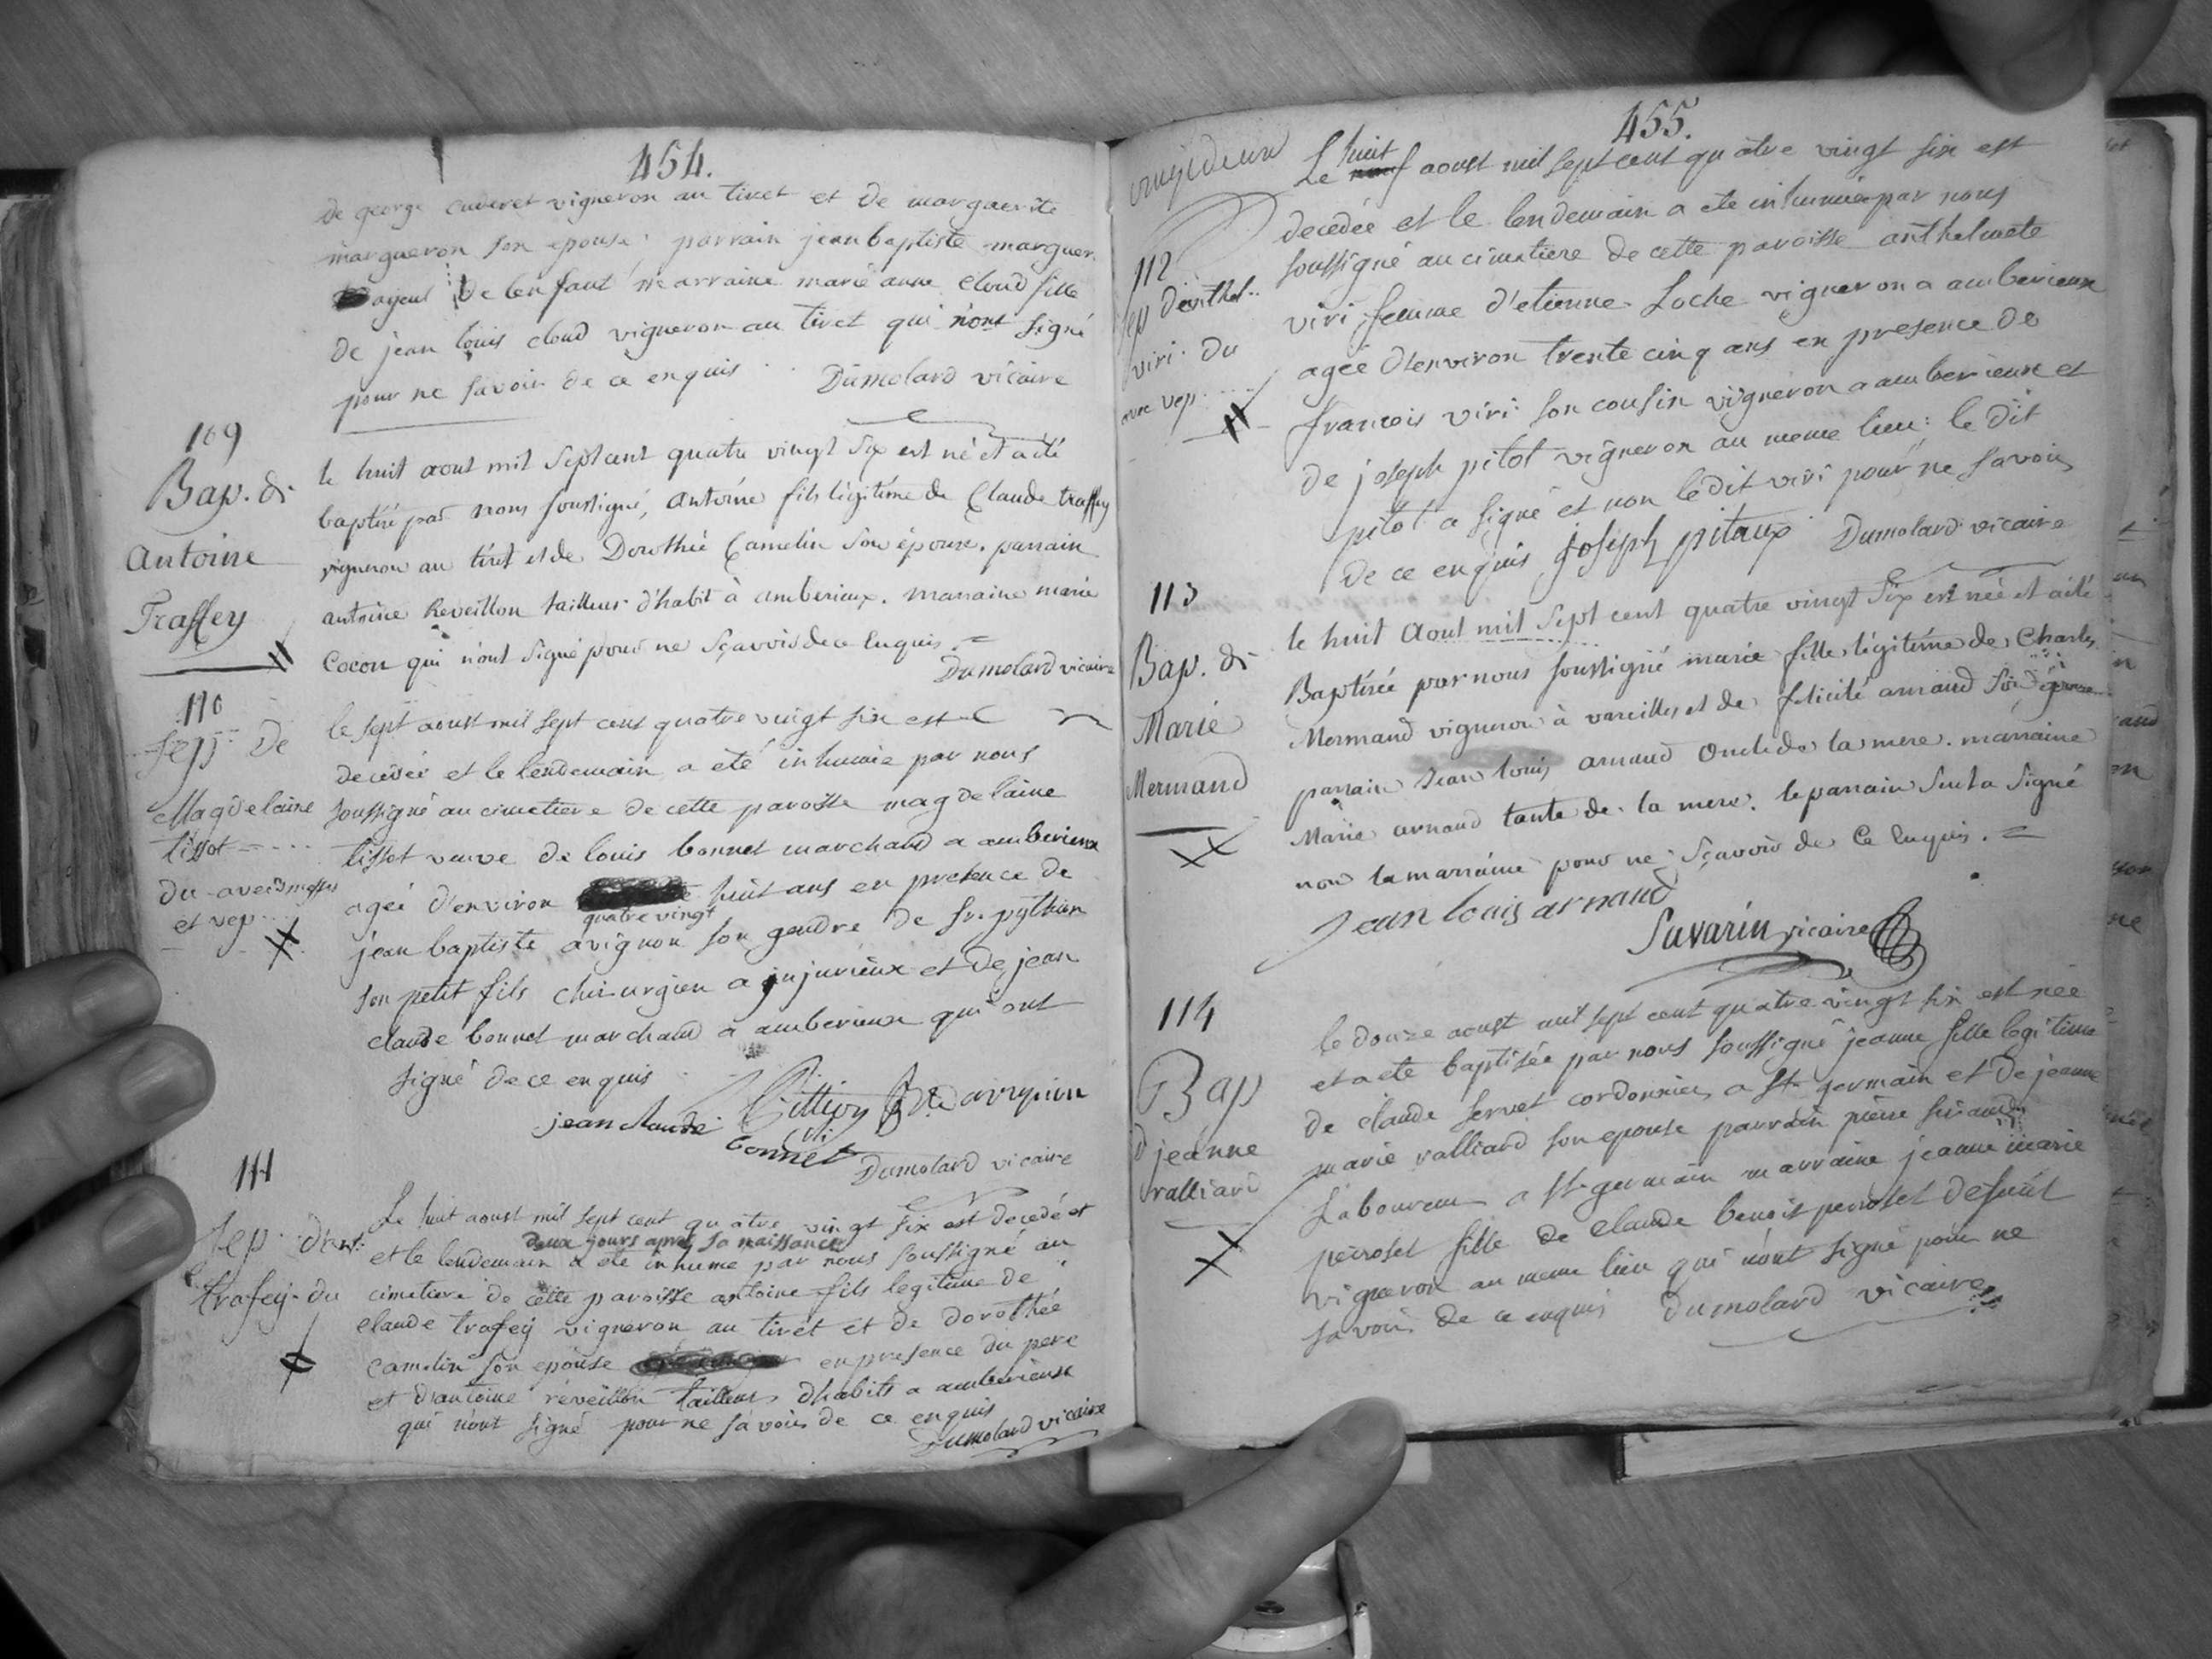 454.
de george cuderet vigneron au tiret et de marguerite
margueron son epouse; parrain jean baptiste marguer.
ayeul de lenfant marraine marie anne cloud fille
de jean louis cloud vigneron au tiret qui n'ont signé
pour ne savoir de ce enquis Dumolard vicaire
109
Bap. d.
Antoine
Traffey
le huit aout mil sept cent quatre vingt six est né et a été
baptisé par nous soussigné, antoine fils légitime de Claude traffey
vigneron au tiret et de Dorothée Camelin son épouse. parrain
antoine Reveillon tailleur d'habit à amberieux. marraine marie
Cocon qui n'ont signé pour ne sçavoir de ce Enquis.
Dumolard vicaire
110
sep. de
Magdelaine
tissot
du avec messes
et vep
le sept aoust mil sept cent quatre vingt six est
decedée et le lendemain a eté inhumée par nous
soussigné au cimetiere de cette paroisse magdelaine
tissot veuve de louis bonnet marchand a amberieux
agée d'environ huit ans en presence de
quatre vingt
jean baptiste avignon son gendre de Sr. pythion
son petit fils chirurgien a jujurieux et de jean
claude bonnet marchand a amberieux qui ont
signé de ce enquis
jean claude
bonnet
Dumolard vicaire
111
sep. d'ant.
trafey. du
Le huit aoust mil sept cent quatre vingt six est decedé et
deux jours apres sa naissance
et le lendemain a eté inhumé par nous soussigné au
cimetiere de cette paroisse antoine fils legitime de
claude trafey vigneron au tiret et de dorothée
camelin son epouse en presence du pere
et d'antoine reveillon tailleur d'habits a amberieux
qui n'ont signé pour ne savoir de ce enquis
Dumolard vicaire
455.
112
sep d'enthel..
viri. du
avec vep.
huit
Le aoust mil sept cent quatre vingt six est
decedée et le lendemain a eté inhumée par nous
soussigné au cimetiere de cette paroisse anthelmete
viri femme d'etienne Loche vigneron a amberieux
agée d'environ trente cinq ans en presence de
francois viri son cousin vigneron a amberieux et
de joseph pitot vigneron au meme lieu: le dit
pitot a signé et non ledit viri pour ne savoir
de ce enquis joseph pitaux Dumolard vicaire
113
Bap. d.
Marie
Mermand
le huit Aout mil sept cent quatre vingt six est née et a été
Baptisée par nous soussigné marie fille légitime de Charles
Mermand vigneron à vareilles et de felicité arnaud son épouse
parrain Jean louis arnaud Oncle de la mere. marraine
Marie arnaud tante de la mere. le parrain seul a signé
non la marraine pour ne sçavoir de Ce Enquis.
Jean louis arnaud
Savarin vicaire
114
Bap
d jeanne
ralliard
le douze aoust mil sept cent quatre vingt six est née
et a eté baptisée par nous soussigné jeanne fille legitime
de claude servet cordonnier a st germain et de jeanne
marie ralliard son epouse parrain pierre
Laboureur a st germain marraine jeanne marie
peroset fille de claude benoit peroset defunt
vigneron au meme lieu qui n'ont signé pour ne
savoir de ce enquis Dumolard vicaire